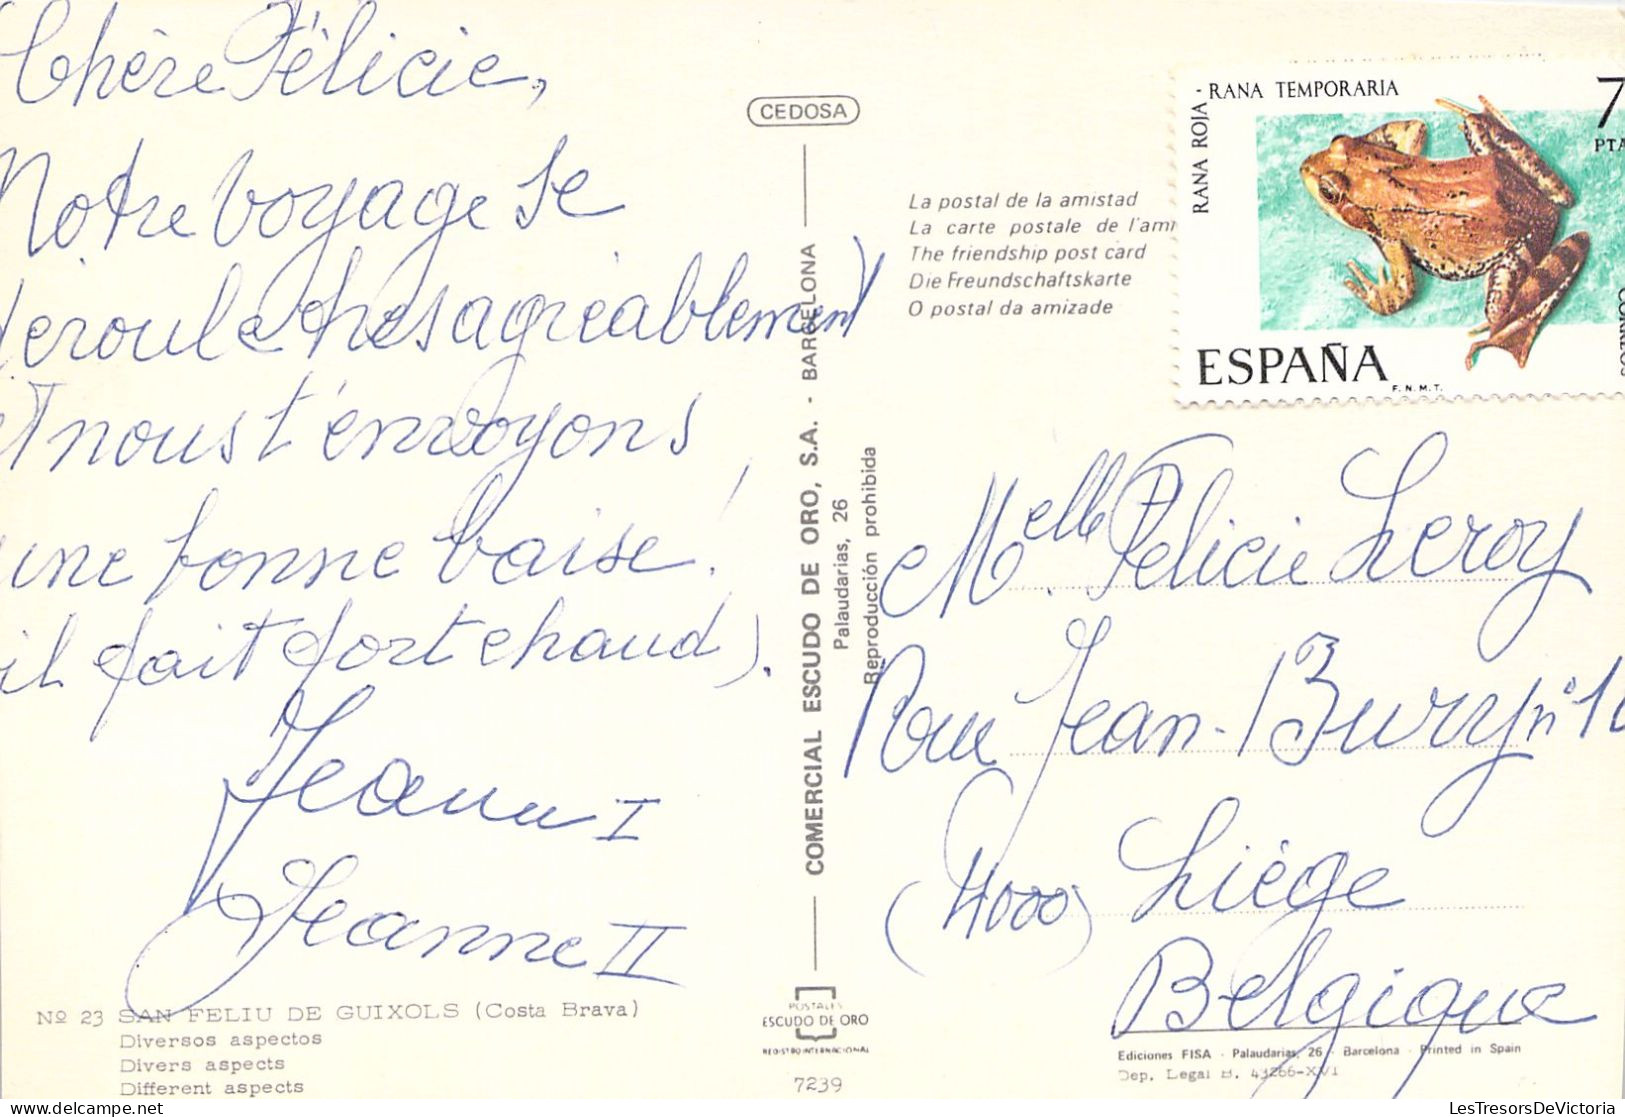 Chère Félicie,
Notre voyage se
déroule très agréablement
et nous t'envoyons
une bonne baise!
il fait fort chaud).
Jeanne I
Jeanne II
Nº 23 SAN FELIU DE GUIXOLS (Costa Brava)
Diversos aspectos
Divers aspects
Different aspects
CEDOSA
COMERCIAL ESCUDO DE ORO, S.A. - BARCELONA
Palaudarias, 26
Reproducción prohibida
POSTALES
ESCUDO DE ORO
REGISTRO INTERNACIONAL
7239
La postal de la amistad
La carte postale de l'ami
The friendship post card
Die Freundschaftskarte
O postal da amizade
RANA ROJA - RANA TEMPORARIA
7
PTA
CORREOS
ESPAÑA
F.N.M.T.
Melle Félicie Leroy
Rue Jean-Bury nº 10
(4000) Liège
Belgique
Ediciones FISA - Palaudarias, 26 - Barcelona - Printed in Spain
Dep. Legal B. 43266-XVI
LesTresorsDeVictoria